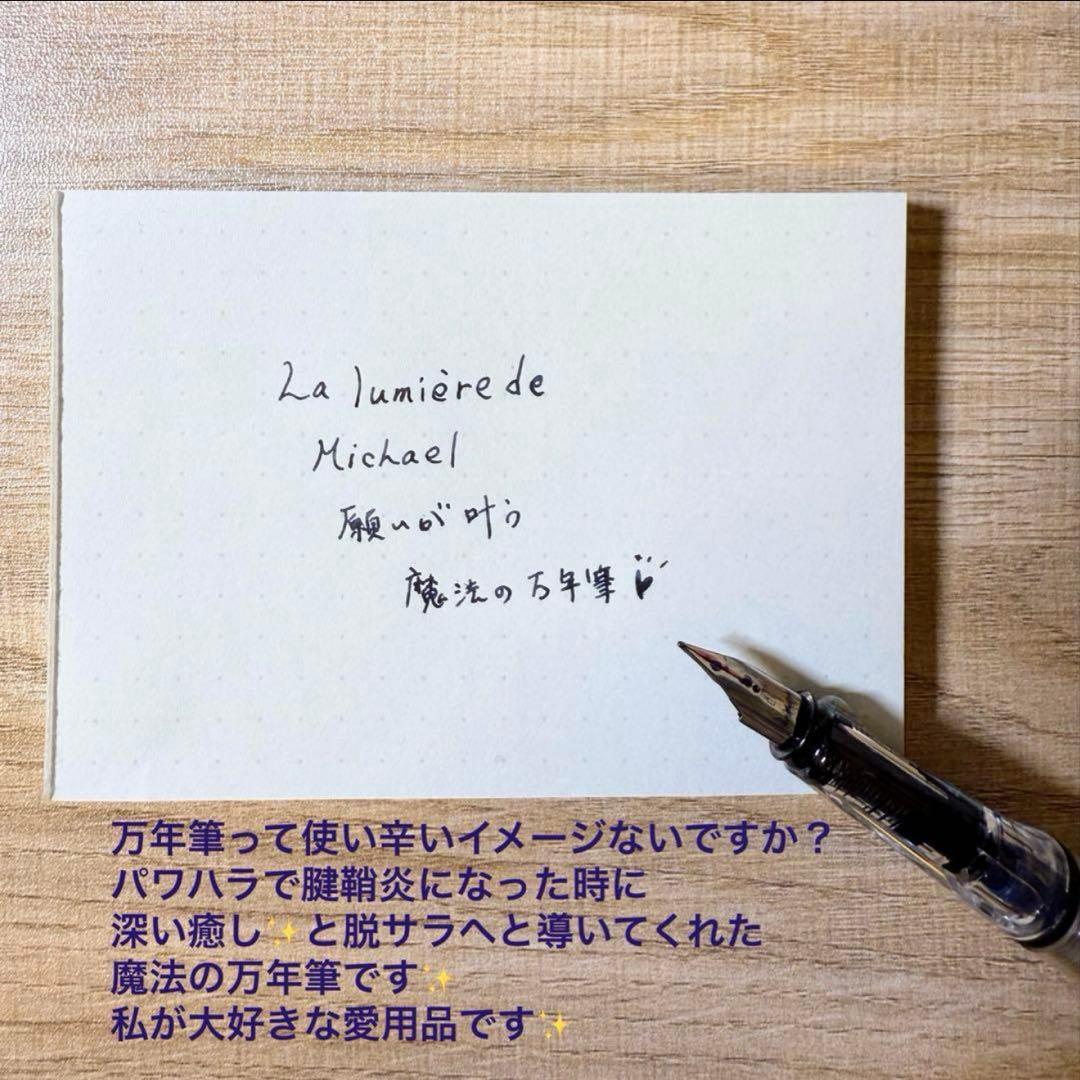 La lumière de
Michael
願いが叶う
魔法の万年筆
万年筆って使い辛いイメージないですか？
パワハラで腱鞘炎になった時に
深い癒し✨と脱サラへと導いてくれた
魔法の万年筆です✨
私が大好きな愛用品です✨